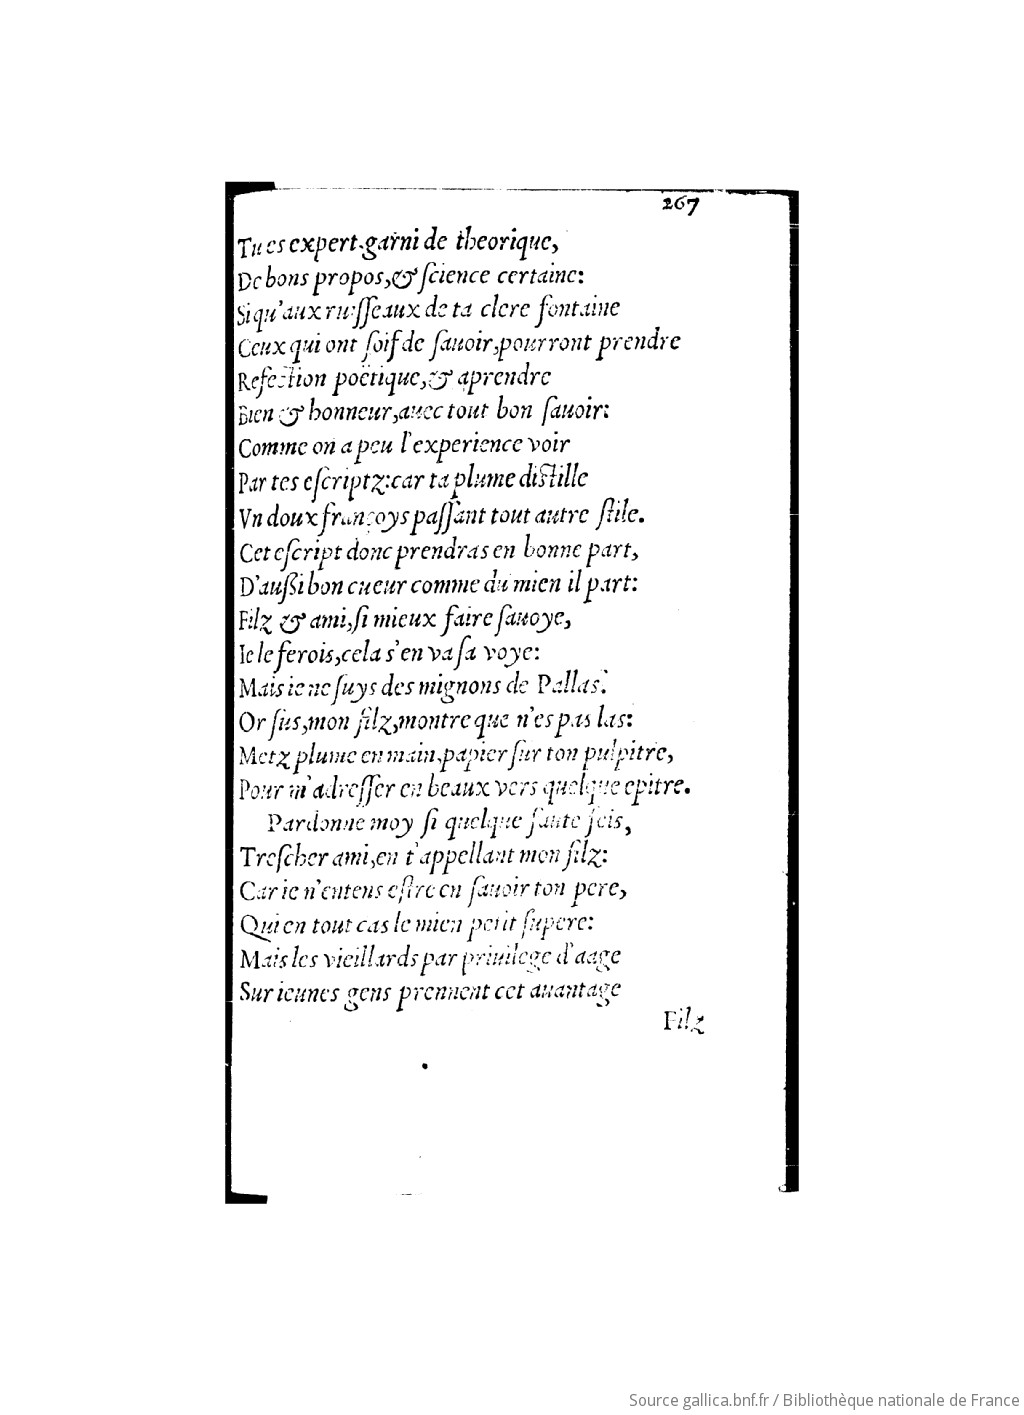 267
Tu es expert, garni de theorique,
De bons propos, & ſcience certaine:
Si qu'aux ruiſſeaux de ta clere fontaine
Ceux qui ont ſoif de ſauoir, pourront prendre
Refection poëtique, & aprendre
Bien & honneur, auec tout bon ſauoir:
Comme on a peu l'experience voir
Par tes eſcriptz: car ta plume diſtille
Vn doux françoys paſſant tout autre ſtile.
Cet eſcript donc prendras en bonne part,
D'auſſi bon cueur comme du mien il part:
Filz & ami, ſi mieux faire ſauoye,
Ie le ferois, cela s'en va ſa voye:
Mais ie ne ſuys des mignons de Pallas.
Or ſus, mon filz, montre que n'es pas las:
Metz plume en main, papier ſur ton pulpitre,
Pour m'adreſſer en beaux vers quelque epitre.
Pardonne moy ſi quelque faute feis,
Treſcher ami, en t'appellant mon filz:
Car ie n'entens eſtre en ſauoir ton pere,
Qui en tout cas le mien petit ſupere:
Mais les vieillards par priuilege d'aage
Sur ieunes gens prennent cet auantage
Filz
Source gallica.bnf.fr / Bibliothèque nationale de France